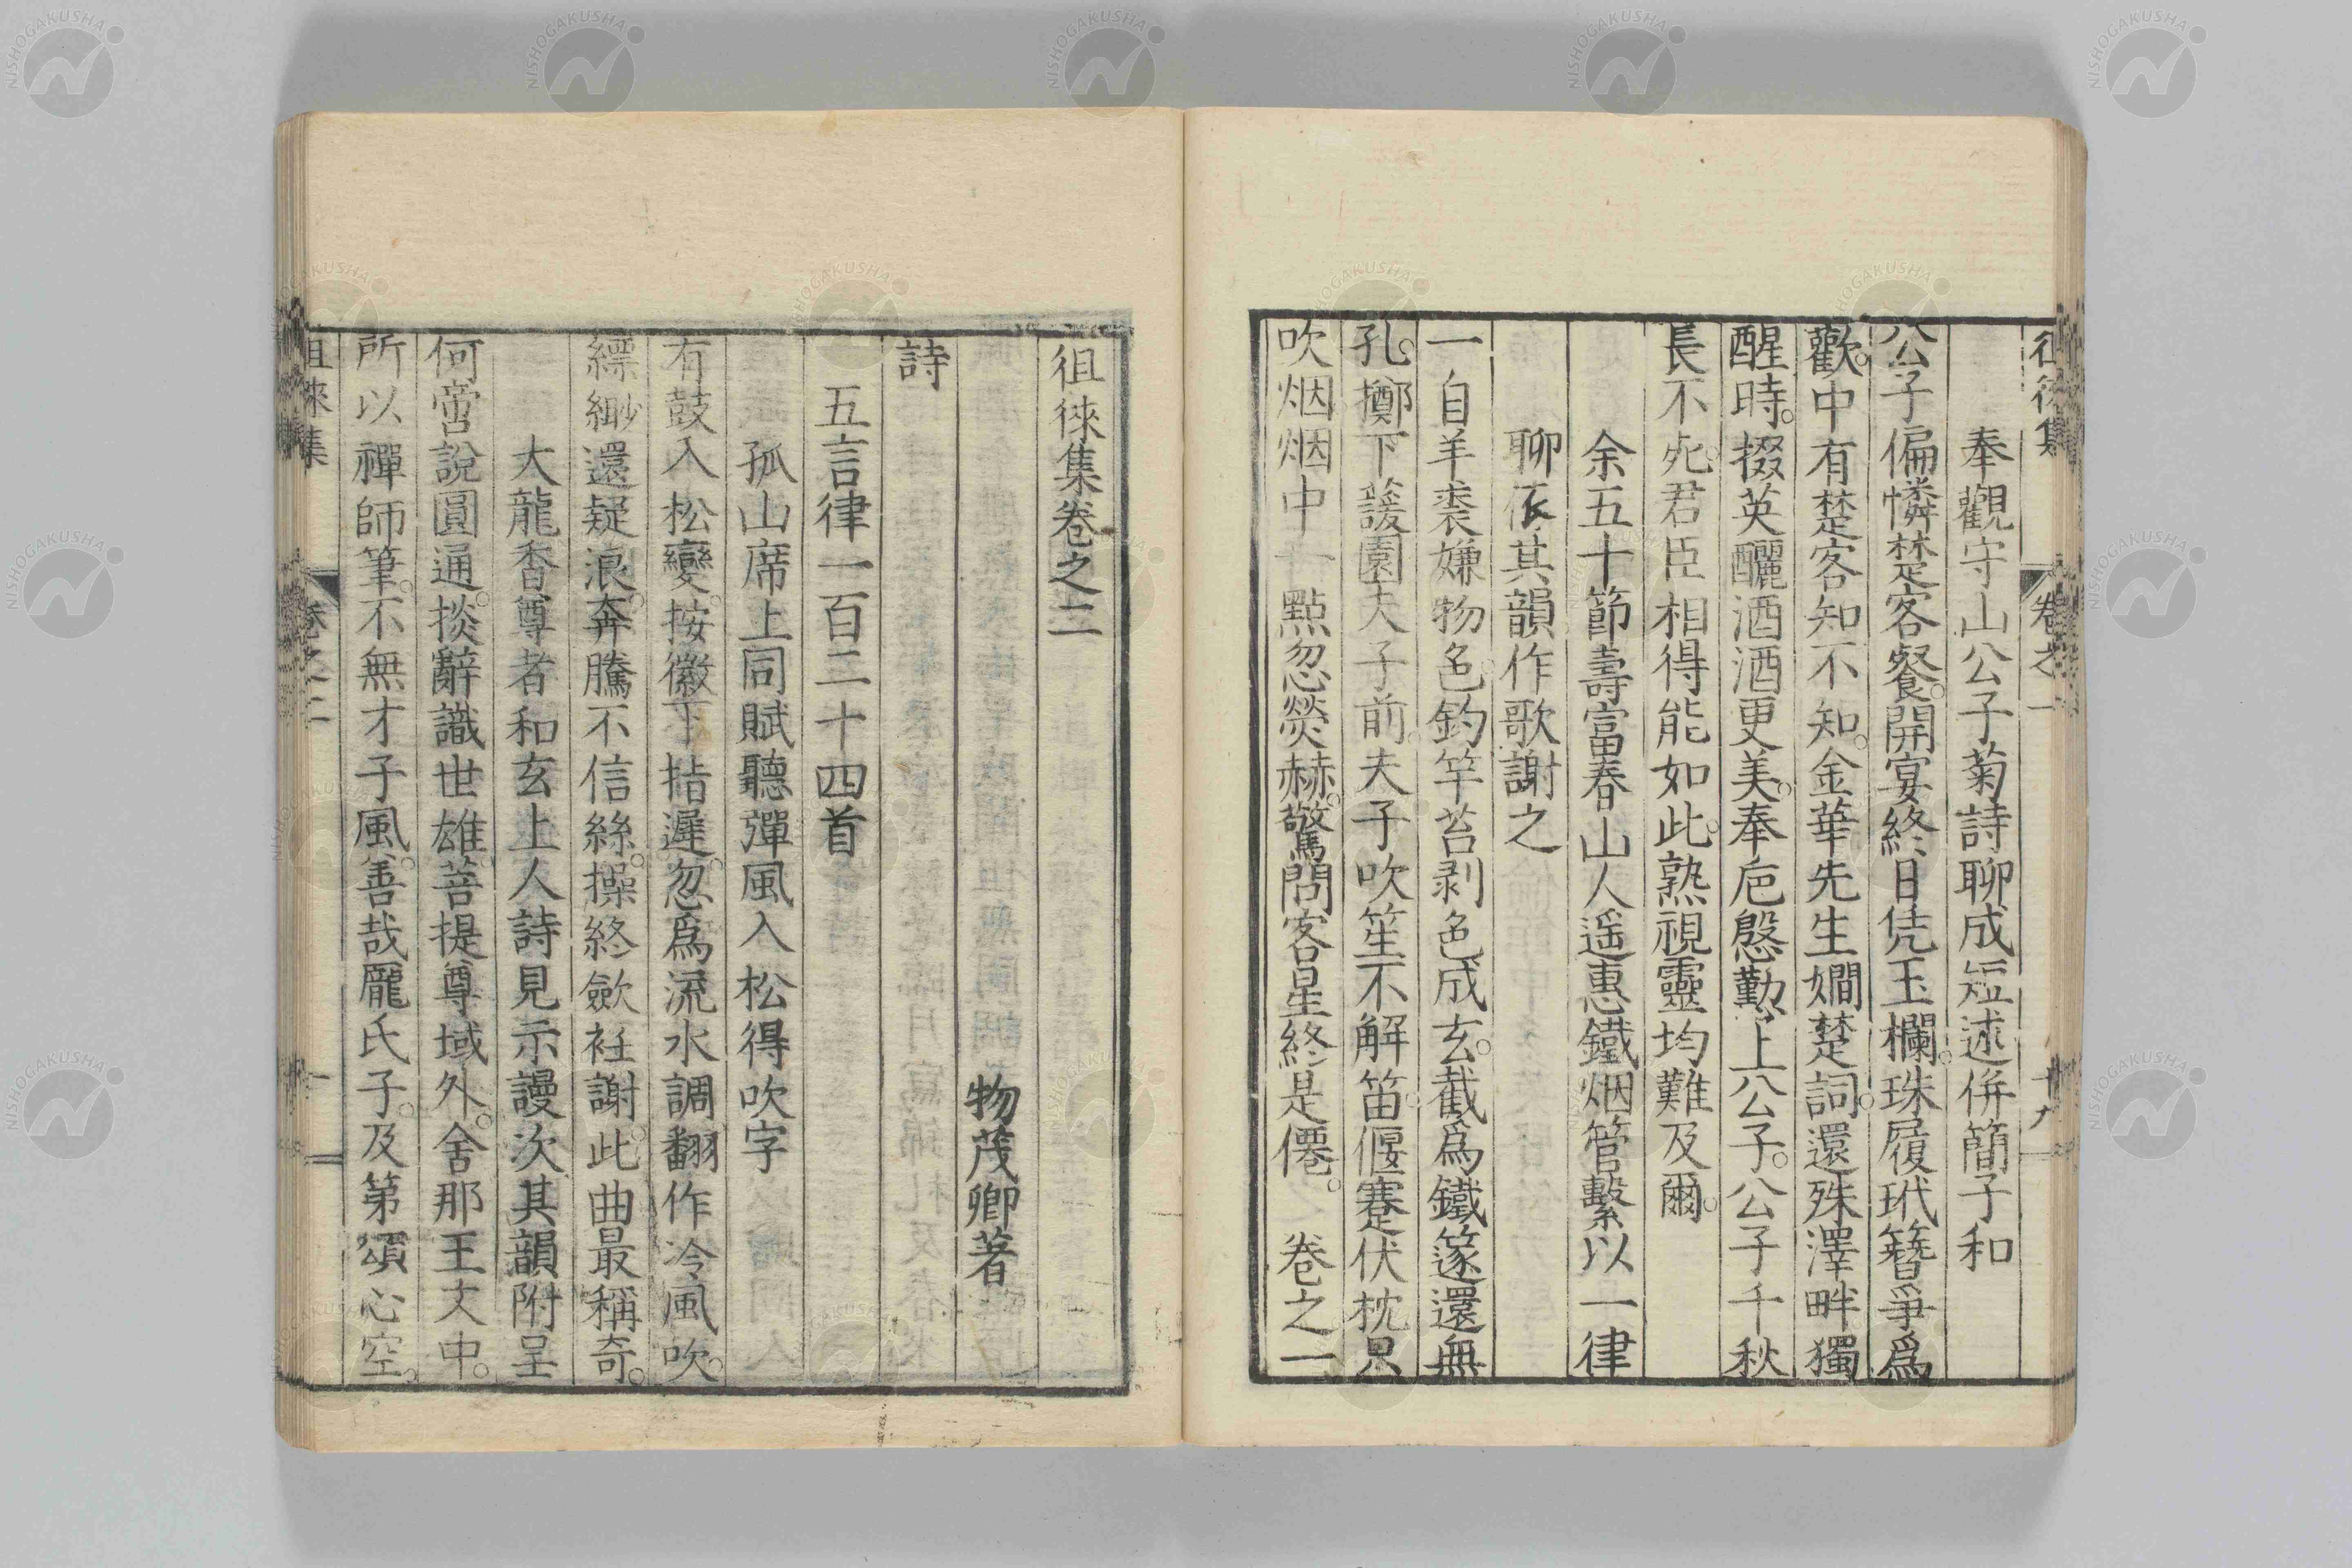 奉觀守山公子菊詩聊成短述併簡子和
公子偏憐楚客餐。開宴終日凭玉欄。珠履玳簪爭爲
歡。中有楚客知不知。金華先生嫺楚詞。還殊澤畔獨
醒時。掇英釃酒酒更美。奉卮慇勤上公子。公子千秋
長不死。君臣相得能如此。熟視靈均難及爾。
余五十節壽富春山人遥惠鐵烟管繫以一律
聊依其韻作歌謝之
一自羊裘嫌物色。釣竿苔剥色成玄。截爲鐵篴還無
孔。擲下諼園夫子前。夫子吹笙不解笛。偃蹇伏枕只
吹烟烟中一點忽熒赫。驚問客星終是僊。 卷之一
徂徠集 卷之一 十九
徂徠集卷之二
物茂卿著
詩
五言律一百二十四首
孤山席上同賦聽彈風入松得吹字
有鼓入松變。按徽下指遲。忽爲流水調翻作冷風吹。
縹緲還疑浪。奔騰不信絲。操終歛衽謝。此曲最稱奇。
大龍香尊者和玄上人詩見示謾次其韻附呈
何啻說圓通。掞辭識世雄菩提尊域外。舍那王文中。
所以禪師筆。不無才子風。善哉龐氏子。及第頌心空。
徂徠集 卷之二 一